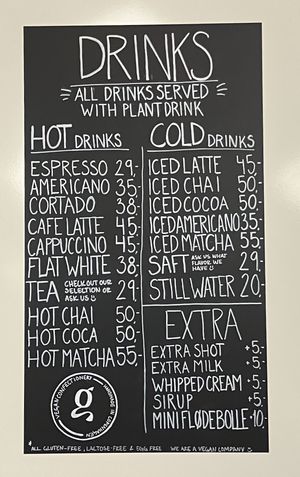 DRINKS
ALL DRINKS SERVED
WITH PLANT DRINK
HOT DRINKS
ESPRESSO 29,-
AMERICANO 35,-
CORTADO 38,-
CAFE LATTE 45,-
CAPPUCCINO 45,-
FLAT WHITE 38,-
TEA CHECK OUT OUR SELECTION OR ASK US 29,-
HOT CHAI 50,-
HOT COCA 50,-
HOT MATCHA 55,-
COLD DRINKS
ICED LATTE 45,-
ICED CHAI 50,-
ICED COCOA 50,-
ICED AMERICANO 35,-
ICED MATCHA 55,-
SAFT ASK US WHAT FLAVOR WE HAVE 29,-
STILL WATER 20,-
EXTRA
EXTRA SHOT +5,-
EXTRA MILK +5,-
WHIPPED CREAM +5,-
SIRUP +5,-
MINI FLØDEBOLLE +10,-
VEGAN CONFECTIONERY HANDMADE IN COPENHAGEN
g
ALL GLUTEN-FREE, LACTOSE-FREE & EGG FREE WE ARE A VEGAN COMPANY